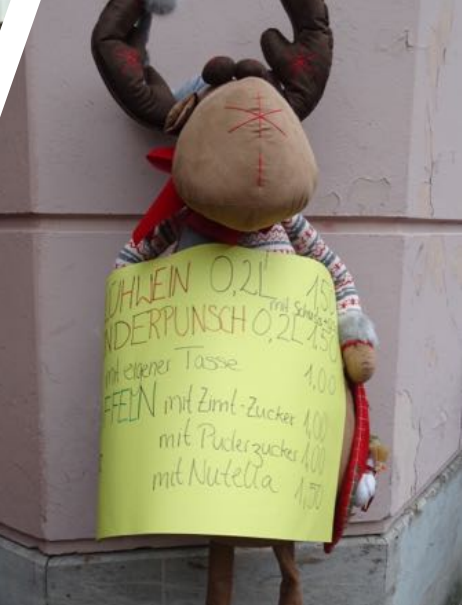 ÜHWEIN 0,2L 1,5
mit Schuss
NDERPUNSCH 0,2L 1,50
mit eigener Tasse 1,00
FFELN mit Zimt-Zucker 1,00
mit Puderzucker 1,00
mit Nutella 1,50